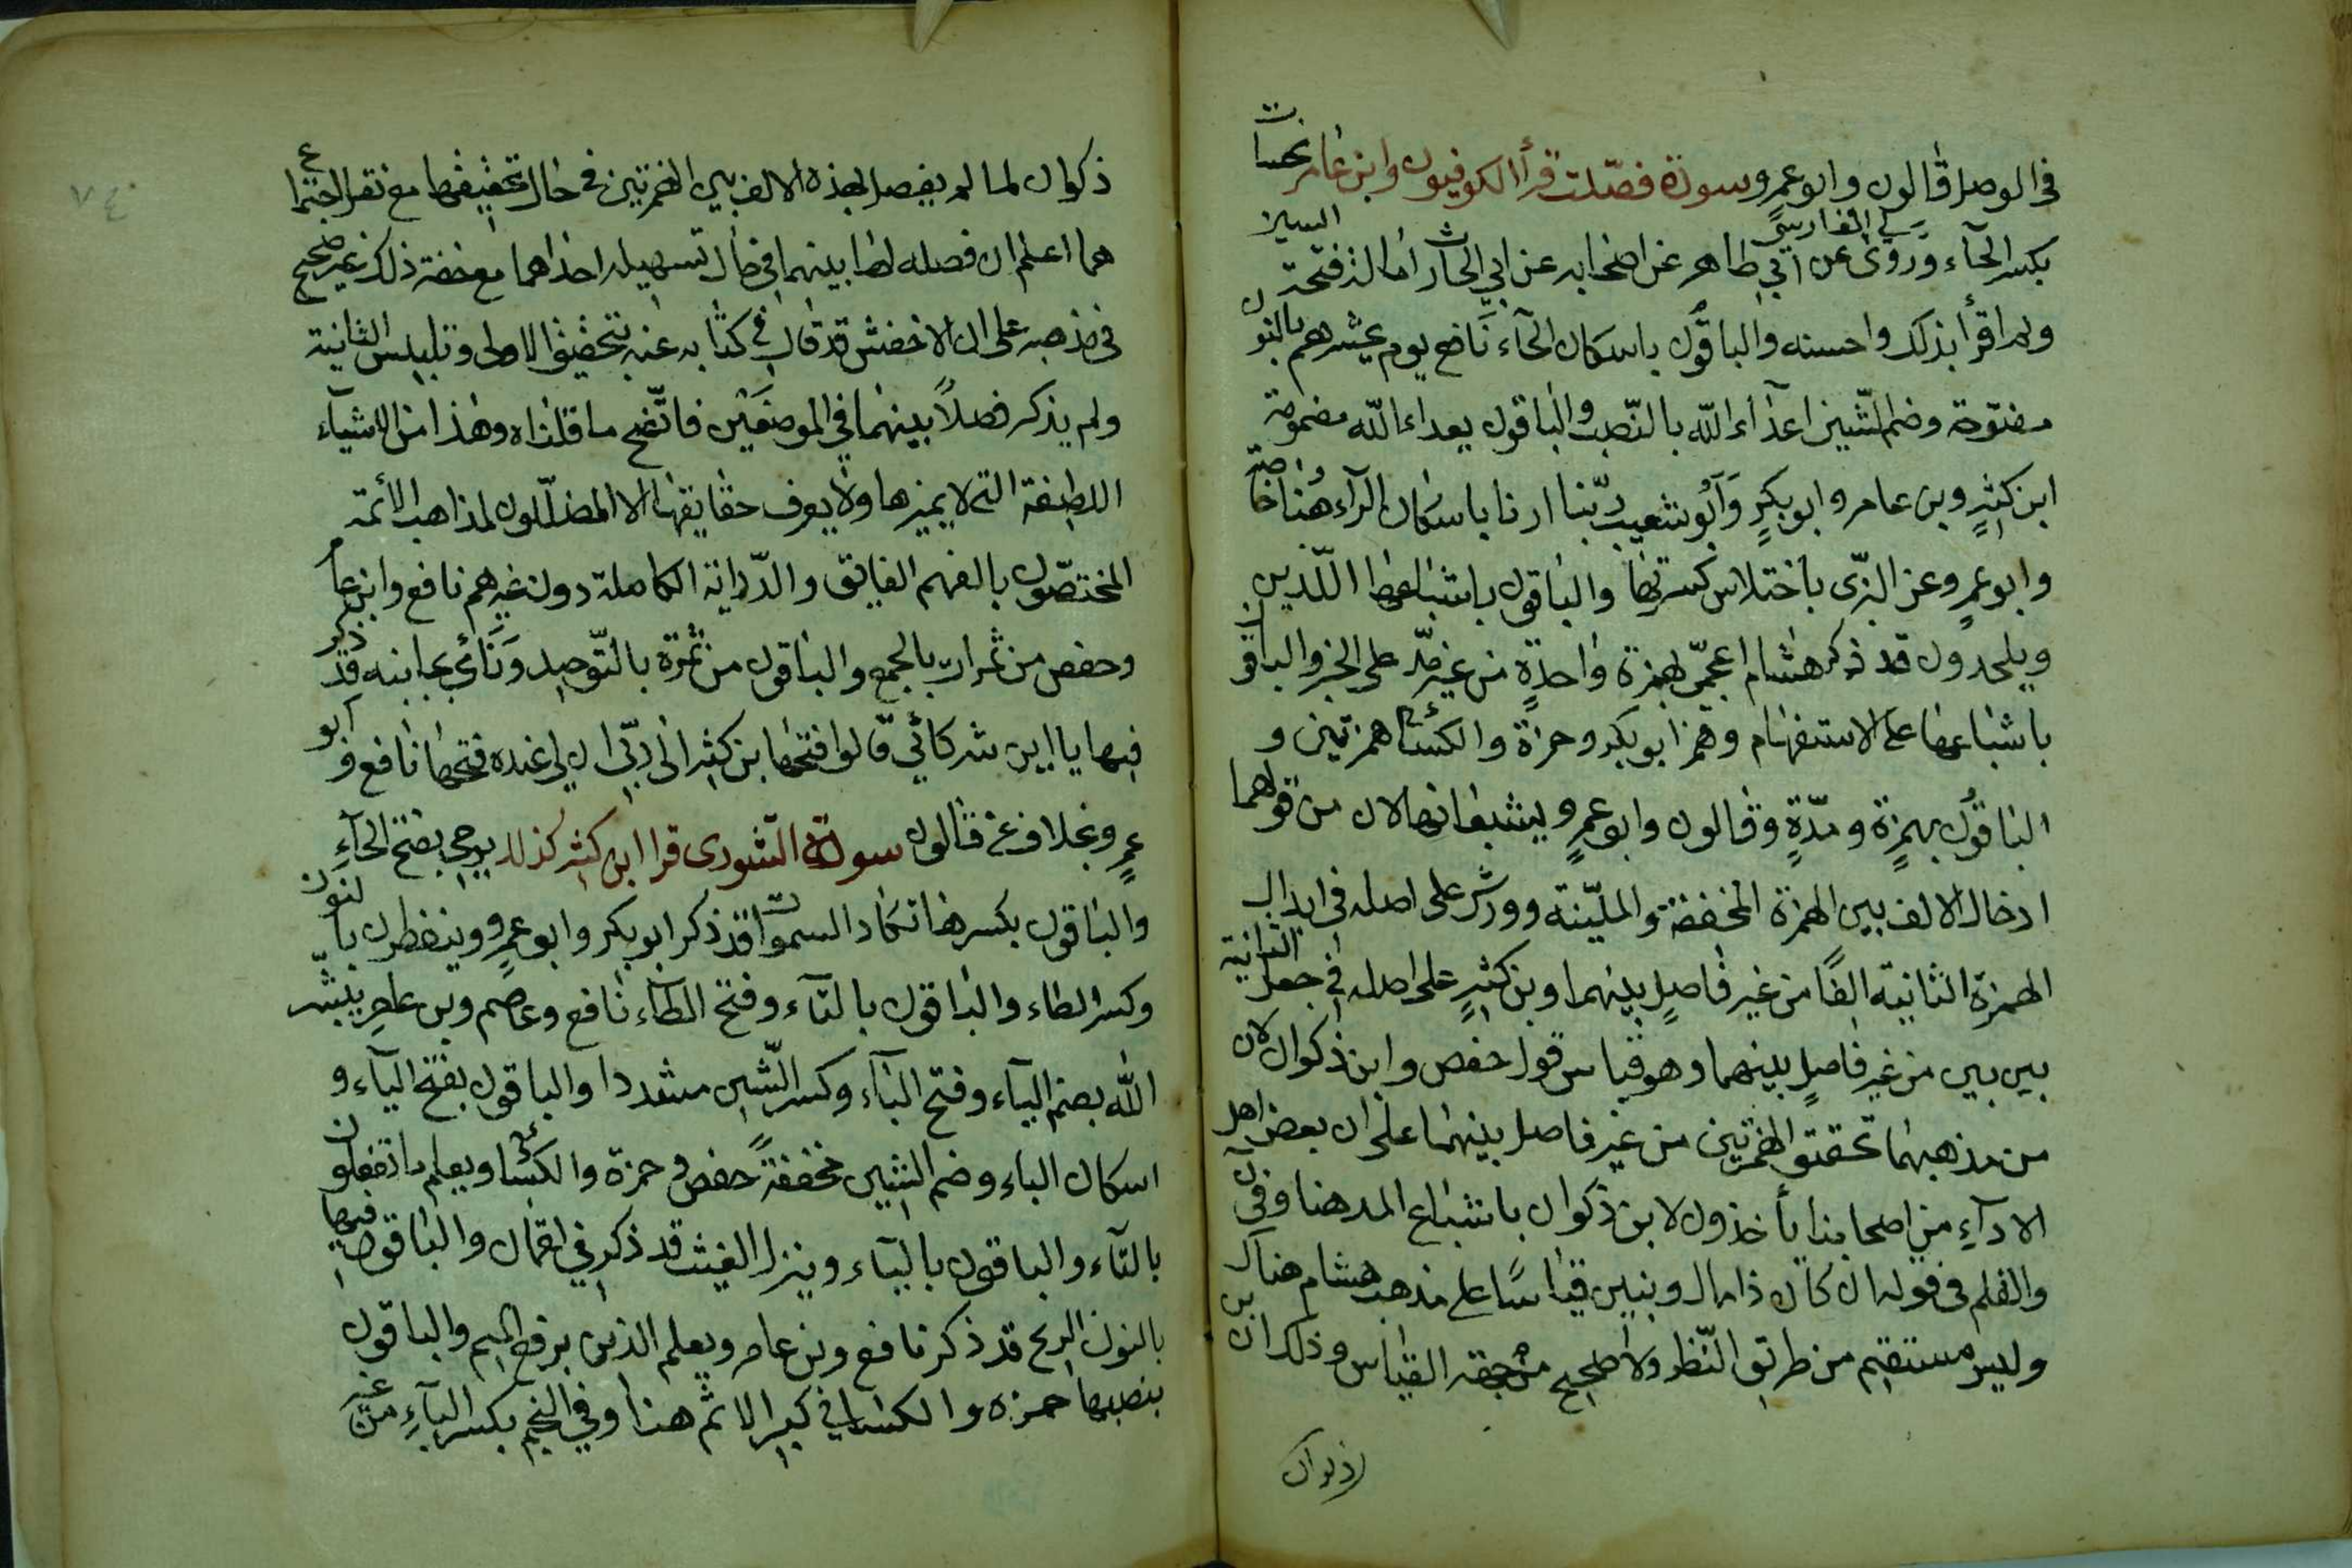 في الوصل قالون وابو عمرو سورة فصّلت قرأ الكوفيون وابن عامر نحسات
بكسر الحآء وروى لي الفارسي عن ابي طاهر عن اصحابه عن ابي الحارث امالة فتحة السين
ولم اقرأ بذلك واحسبه والباقون باسكان الحآء نافع يوم نحشر هم بالنون
مفتوحة وضم الشين اعدآء الله بالنّصب والباقون يعداء الله مضمومة
ابن كثيرٍ وبن عامر وابو بكرٍ وَابُو شعيب ربّنا ارنا باسكان الرآء هُنا خاصّة
وابو عمرٍو وعن اليزى باختلاس كسرتها والباقون باشباعها اللّذين
ويلحدون قد ذكر هشام اعجمّى بهمزة واحدةٍ من غير مدّ على الخبر والباقون
باشباعها على الاستفهام وهمز ابو بكر وحمزة والكسائى همزتين و
الباقون بهمزةٍ ومدّةٍ وقالون وابو عمرٍو يشبعانها لان من قولهما
ادخال الالف بين الهمزة المخففة والمليّنة وورش على اصله في ابدال
الهمزة الثانية الفًا من غير فاصلٍ بينهما وبن كثيرٍ على اصله في جعل الثانية
بين بين من غير فاصلٍ بينهما وهو قياس قول حفص وابن ذكوان لان
من مذهبهما تحقيق الهمزتين من غير فاصل بينهما على ان بعض اهل
الادآءِ من اصحابنا يأخذون لابن ذكوان باشباع المد هنا وفي ن
والقلم في قوله ان كان ذا مال وبنين قياسًا على مذهب هشام هناك
وليس مستقيم من طريق النّظر ولا صحيح من جهة القياس وذلك ان بن
ذكوان
٧٤
ذكوان لما لم يفصل بهذه الالف بين الهمزتين في حال تحقيقهما مع ثقل اجتماع
هما اعلم ان فصله لها بينهما في حال تسهيله احداهما مع خفة ذلك غير صحيح
في مذهبه على ان الاخفش قد قال في كتابه عنه بتحقيق الاولى وتليين الثانية
ولم يذكر فصلاً بينهما في الموضعَين فاتّضح ما قلناه وهذا من الاشيآء
اللطيفة التي لا يميزها ولا يعرف حقايقها الا المضلّلون لمذاهب الأئمة
المختصّون بالفهم الفايق والدّراية الكاملة دون غيرهم نافع وابن عامر
وحفص من ثمرات بالجمع والباقون من ثمرة بالتّوحيد وَنَائى بجانبه قد ذكر
فيها يا اين شركآئي قالوا فتحها بن كثير الى ربّي ان لي عنده فتحها نافع وابو
عمرٍو بخلاف عن قالون سورة الشورى قرا ابن كثير كذلك يوحى بفتح الحآءِ
والباقون بكسرها تكاد السموات قد ذكر ابو بكر وابو عمرٍو وينفطرن بالنون
وكسر الطاء والباقون بالتآء وفتح الطآء نافع وعاصم وبن عامرٍ يبشّر
الله بضم اليآء وفتح البآء وكسر الشّين مشددا والباقون بفتح اليآء و
اسكان الباء وضم الشين مخففةً حفص وحمزة والكسائى ويعلم ما تفعلون
بالتآء والباقون باليآء وينزل الغيث قد ذكر في لقمان والباقون فيها
بالنون الريح قد ذكر نافع وبن عامر ويعلم الذين برفع الميم والباقون
بنصبها حمزه والكسائى في كبير الاثم هنا وفي النجم بكسر البآءِ من غير